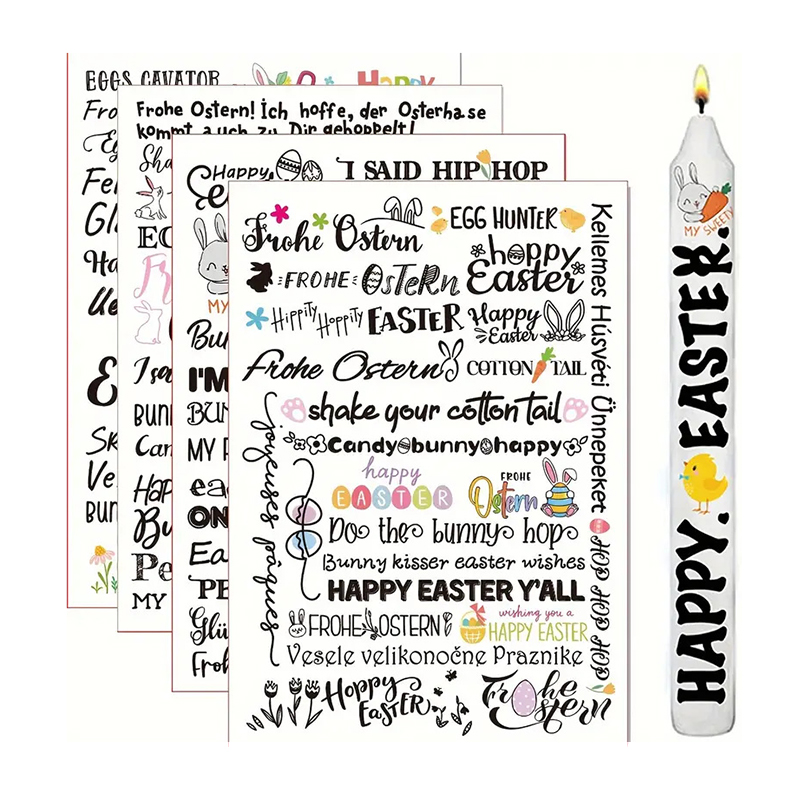 EGGS CAVATOR
Happy
Frohe Ostern! Ich hoffe, der Osterhase
kommt auch zu Dir gehoppelt!
Happy
I SAID HIP HOP
MY
I'M
BUN
MY
ON
MY
Frohe Ostern
EGG HUNTER
hoppy
Easter
FROHE OSTERN
Hippity Hoppity EASTER
Happy
Easter
Frohe Ostern
COTTON TAIL
shake your cotton tail
Candy bunny happy
happy
EASTER
FROHE
Ostern
Do the bunny hop
Bunny kisser easter wishes
HAPPY EASTER Y'ALL
FROHE OSTERN
wishing you a
HAPPY EASTER
Vesele velikonočne Praznike
Hoppy
EASTER
Frohe
Ostern
joyeuses pâques
Kellemes Húsvéti Ünnepeket
HOP HOP HOP
MY SWEETY
HAPPY. EASTER.